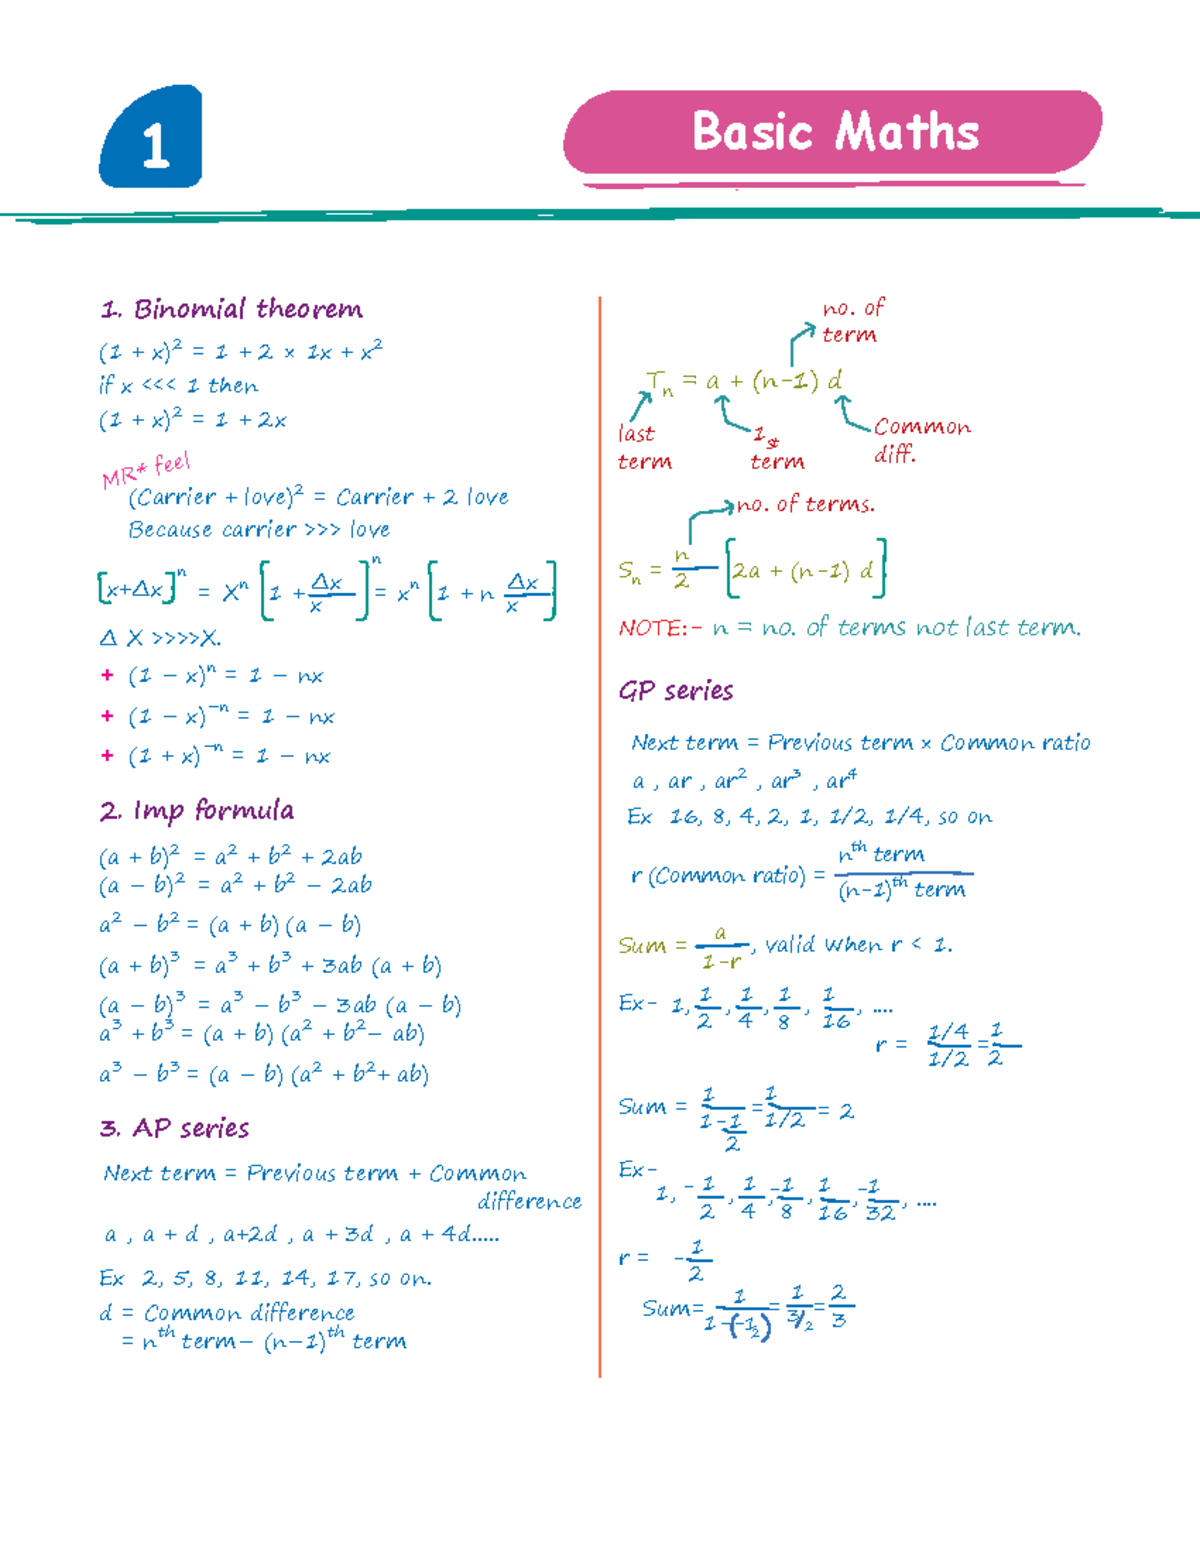 1
Basic Maths
1. Binomial theorem
(1 + x)² = 1 + 2 × 1x + x²
if x <<< 1 then
(1 + x)² = 1 + 2x
MR* feel
(Carrier + love)² = Carrier + 2 love
Because carrier >>> love
[x+Δx]ⁿ = Xⁿ [1 + Δx/x]ⁿ = xⁿ [1 + n Δx/x]
Δ X >>>>X.
+ (1 − x)ⁿ = 1 − nx
+ (1 − x)⁻ⁿ = 1 − nx
+ (1 + x)⁻ⁿ = 1 − nx
2. Imp formula
(a + b)² = a² + b² + 2ab
(a − b)² = a² + b² − 2ab
a² − b² = (a + b) (a − b)
(a + b)³ = a³ + b³ + 3ab (a + b)
(a − b)³ = a³ − b³ − 3ab (a − b)
a³ + b³ = (a + b) (a² + b²− ab)
a³ − b³ = (a − b) (a² + b²+ ab)
3. AP series
Next term = Previous term + Common
difference
a , a + d , a+2d , a + 3d , a + 4d.....
Ex 2, 5, 8, 11, 14, 17, so on.
d = Common difference
= nᵗʰ term− (n−1)ᵗʰ term
no. of
term
Tₙ = a + (n-1) d
last
term
1st
term
Common
diff.
no. of terms.
Sₙ = n/2 [2a + (n-1) d]
NOTE:- n = no. of terms not last term.
GP series
Next term = Previous term × Common ratio
a , ar , ar² , ar³ , ar⁴
Ex 16, 8, 4, 2, 1, 1/2, 1/4, so on
r (Common ratio) = nᵗʰ term/(n-1)ᵗʰ term
Sum = a/1-r , valid when r < 1.
Ex- 1, 1/2 , 1/4 , 1/8 , 1/16 , ....
r = 1/4/1/2 = 1/2
Sum = 1/1-1/2 = 1/1/2 = 2
Ex-
1, -1/2 , 1/4 , -1/8 , 1/16 , -1/32 , ....
r = -1/2
Sum= 1/1-(-1/2) = 1/3/2 = 2/3